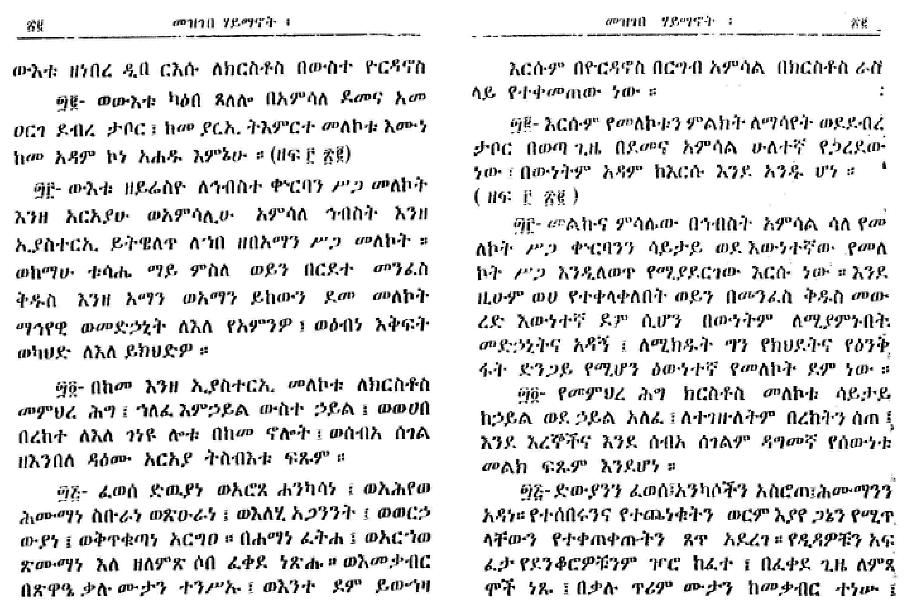 ፷፪ መዝገበ ሃይማኖት ፡
ውእቱ ዘነበረ ዲበ ርእሱ ለክርስቶስ በውስተ ዮርዳኖስ
፵፪- ወውእቱ ካዕበ ጸለሎ በአምሳለ ደመና አመ
ዐርገ ደብረ ታቦር ፤ ከመ ያርኢ ትእምርተ መለኮቱ እሙነ
ከመ አዳም ኮነ አሐዱ እምኔሁ ። (ዘፍ ፫ ፳፪)
፵፫- ውእቱ ዘይሬስዮ ለኅብስተ ቍርባን ሥጋ መለኮት
እንዘ አርአያሁ ወአምሳሊሁ አምሳለ ኅብስት እንዘ
ኢያስተርኢ ይትዌለጥ ለኀበ ዘበአማን ሥጋ መለኮት ።
ወከማሁ ቱሳሔ ማይ ምስለ ወይን በርደተ መንፈስ
ቅዱስ እንዘ አማን ወአማን ይከውን ደመ መለኮት
ማኅየዊ ወመድኃኒት ለእለ የአምንዎ ፤ ወዕብነ እቅፍት
ወካህድ ለእለ ይክህድዎ ።
፵፬- በከመ እንዘ ኢያስተርኢ መለኮቱ ለክርስቶስ
መምህረ ሕግ ፤ ኀለፈ እምኃይል ውስተ ኃይል ፤ ወወሀበ
በረከተ ለእለ ገነዩ ሎቱ በከመ ኖሎት ፤ ወሰብአ ሰገል
ዘእንበለ ዳዕሙ አርአያ ትስብእቱ ፍጹም ።
፵፭- ፈወሰ ድዉያነ ወአሮጸ ሐንካሳነ ፤ ወአሕየወ
ሕሙማነ ስቡራነ ወጽዑራነ ፤ ወእለሂ አጋንንት ፤ ወወርኃ
ውያነ ፤ ወቅጥቁጣነ አርግዐ ። በሐማነ ፈትሐ ፤ ወአርኀወ
ጽሙማነ እለ ዘለምጽ ሶበ ፈቀደ ነጽሑ ። ወእመቃብር
በጽዋዔ ቃሉ ሙታን ተንሥኡ ፤ ወእንተ ደም ይውኅዛ
መዝገበ ሃይማኖት ፡ ፷፪
እርሱም በዮርዳኖስ በርግብ አምሳል በክርስቶስ ራስ
ላይ የተቀመጠው ነው ።
፵፪- እርሱም የመለኮቱን ምልክት ለማሳየት ወደደብረ
ታቦር በወጣ ጊዜ በደመና አምሳል ሁለተኛ የጋረደው
ነው ፤ በውነትም አዳም ከእርሱ እንደ አንዱ ሆነ ።
( ዘፍ ፫ ፳፪ )
፵፫- መልኩና ምሳሌው በኅብስት አምሳል ሳለ የመ
ለኮት ሥጋ ቍርባንን ሳይታይ ወደ እውነተኛው የመለ
ኮት ሥጋ እንዲለወጥ የሚያደርገው እርሱ ነው ። እንደ
ዚሁም ወሀ የተቀላቀለበት ወይን በመንፈስ ቅዱስ መው
ረድ እውነተኛ ደም ሲሆን በውነትም ለሚያምኑበት
መድኃኒትና አዳኝ ፤ ለሚክዱት ግን የክህደትና የዕንቅ
ፋት ድንጋይ የሚሆን ዕውነተኛ የመለኮት ደም ነው ።
፵፬- የመምህረ ሕግ ክርስቶስ መለኮቱ ሳይታይ
ከኃይል ወደ ኃይል አለፈ ፤ ለተገዙለትም በረከትን ሰጠ ፤
እንደ እረኞችና እንደ ሰብአ ሰገልም ዳግመኛ የሰውነቱ
መልክ ፍጹም እንደሆነ ።
፵፭- ድውያንን ፈወሰ፤አንካሶችን አስሮጠ፤ሕሙማንን
አዳነ። የተሰበሩንና የተጨነቁትን ወርም እያየ ጋኔን የሚጥ
ላቸውን የተቀጠቀጡትን ጸጥ አደረገ ። የዲዳዎቹን አፍ
ፈታ የደንቆሮዎቹንም ገሮሮ ከፈተ ፤ በፈቀደ ጊዜ ለምጻ
ሞች ነጹ ፤ በቃሉ ጥሪም ሙታን ከመቃብር ተነሡ ፤